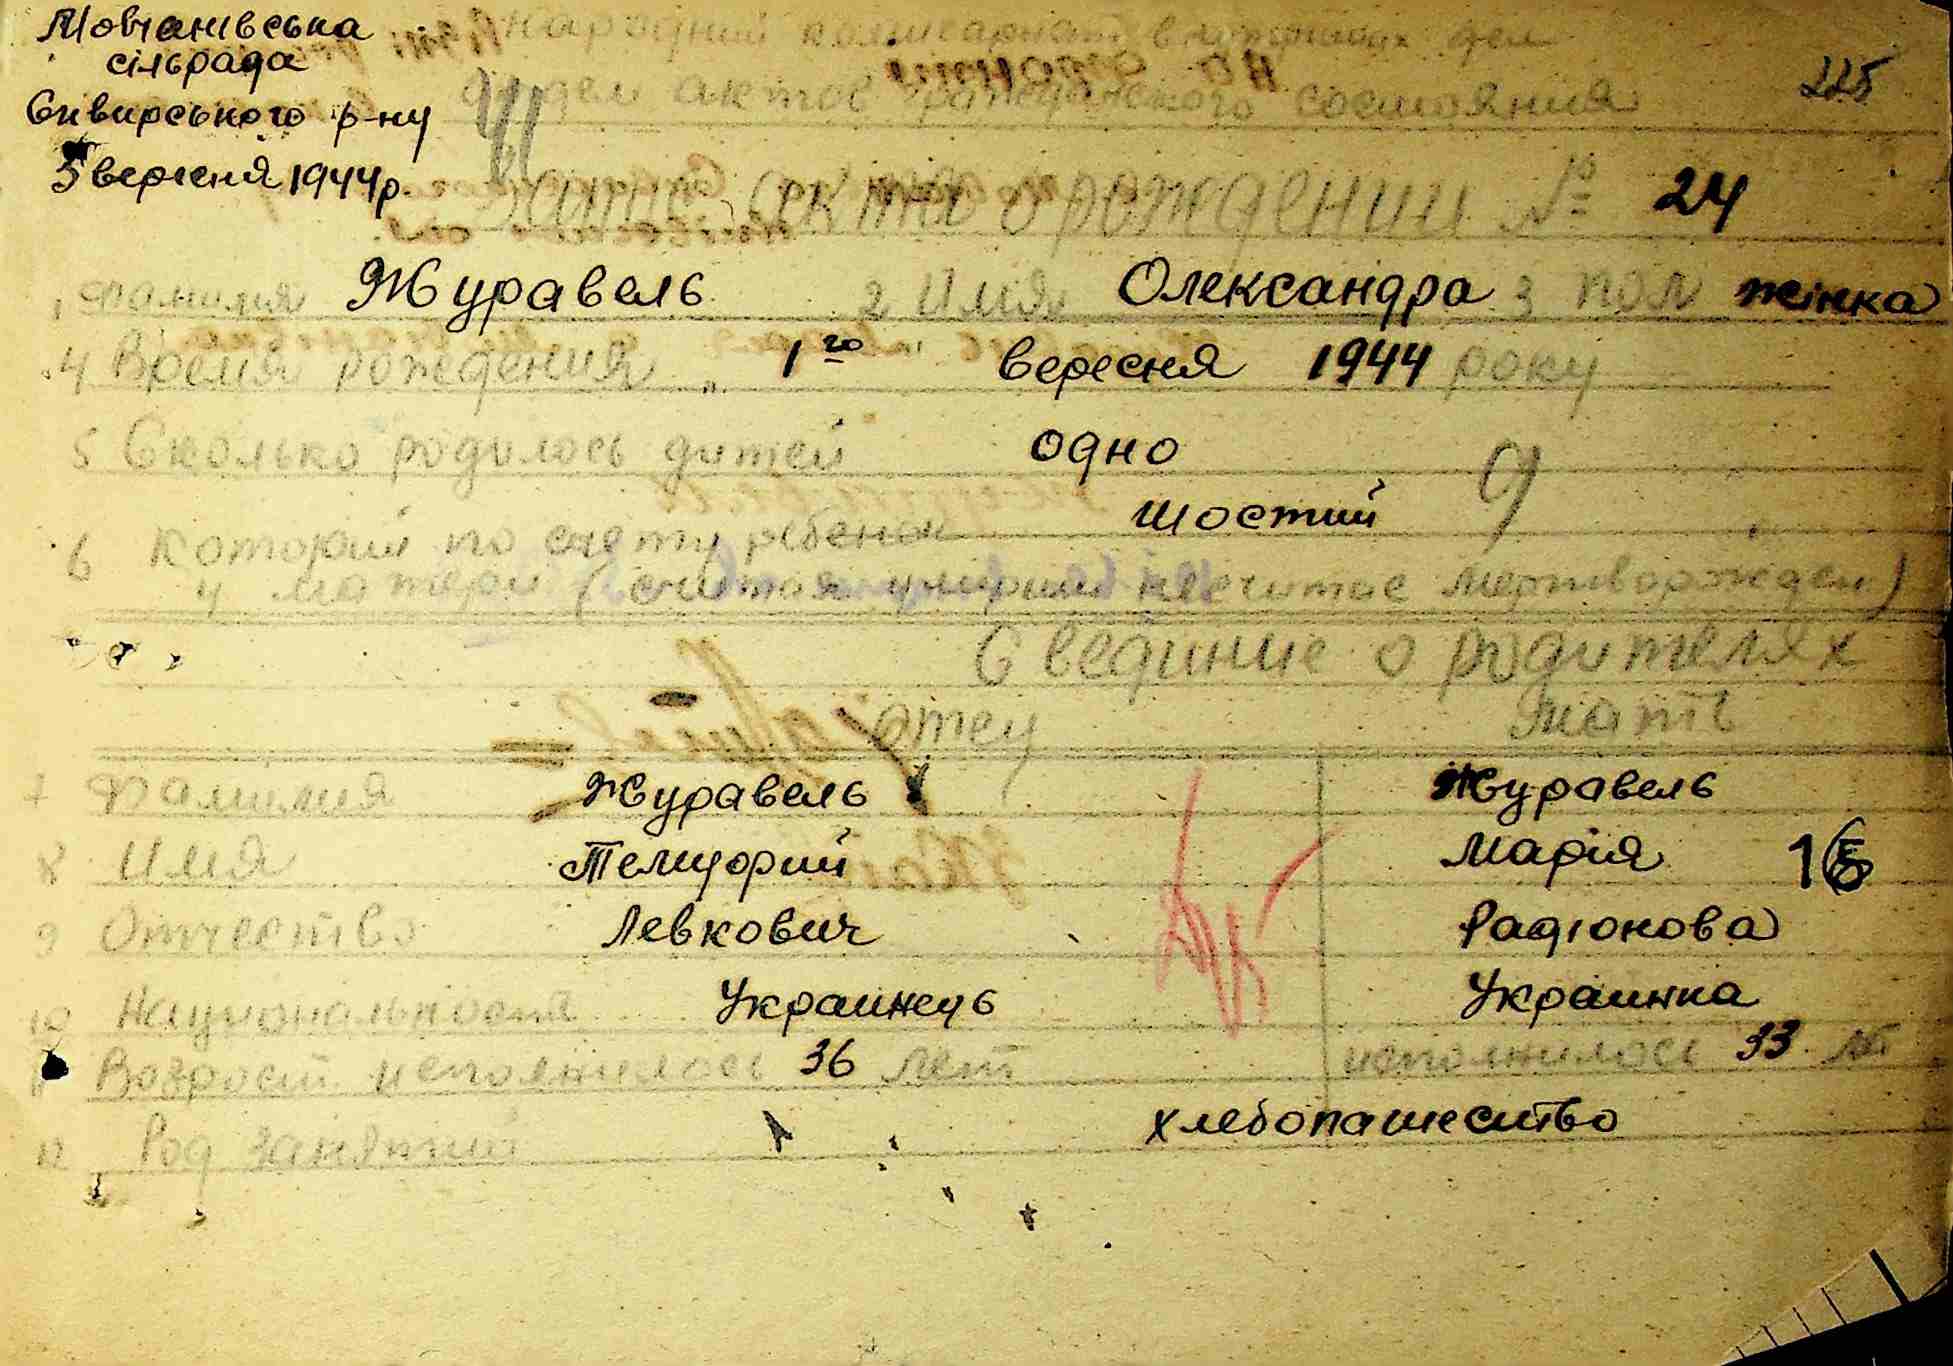 Мовчанівська
сільрада
Сквирського р-ну
5 вересня 1944р.
Народний комисариат внутрених дел
отдел актов гражданского состояния
225
Запис акта о рождении № 24
1 Фамилия Журавель 2 Имя Олександра 3 пол жінка
4 Время рождения „ 1го вересня 1944 року
5 Сколько родилось дитей одно
9
6 Которий по счету ребенок шостий
у матери (считая умерших несчитас мертворожден)
Свединие о родителях
отец мать
7 Фамилия Журавель Журавель
8 Имя Марія 16
9 Отчество Левкович Радіонова
10 Национальность Украинець Украинка
11 Возрост исполнилось 36 лет исполнилось 33 лет
12 Род занятий хлебопашество